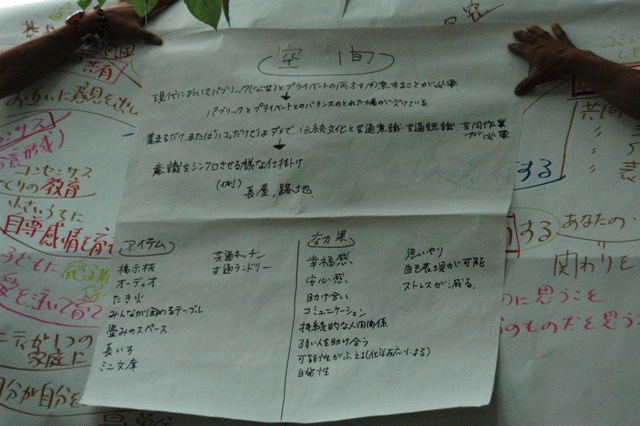 空間
現代においてパブリック(公共)とプライベートの両方を用意することが必要
パブリックとプライベートとのバランスのとれた場が欠けている
集まるだけ、または"いる"だけではダメで、伝統文化と共通意識・共通認識 共同作業が必要
意識をシンクロさせる様な仕掛け
(例)
長屋、路地
アイテム
掲示板
オーディオ
たき火
みんなが囲めるテーブル
畳のスペース
長いす
ミニ文庫
共通キッチン
共通ランドリー
効果
幸福感、
安心感、
助け合い
コミュニケーション
持続的な人間関係
弱い人を助け合う
可能性がふえる(化学反応による)
自発性
思いやり
自己表現が可能
ストレスが減る。
お互いに意見を出し
コンセンサス
コンセンサス
づくりの教育
小さいうちに
自尊感情を育
子どもに
家庭に
自分が自分を
する
あなたの
する
関わりを
に思うこと
のものだと思う